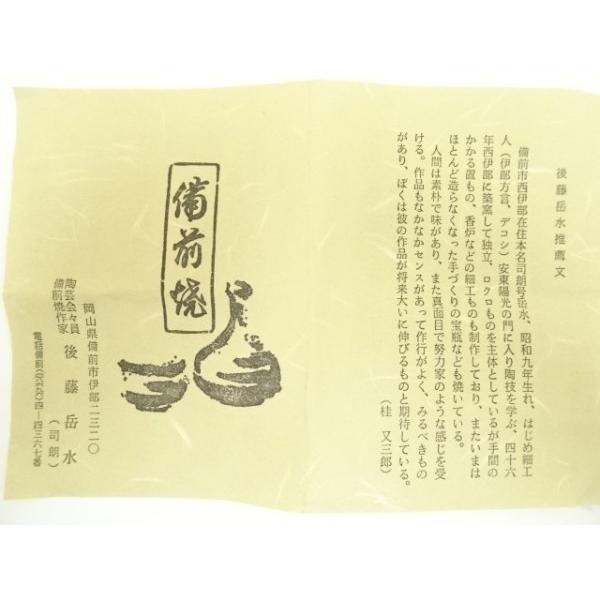 後藤岳水推薦文
備前市西伊部在住本名司朗号岳水、昭和九年生れ、はじめ細工
人（伊部方言、デコシ）安東陽光の門に入り陶技を学ぶ、四十六
年西伊部に築窯して独立、ロクロものを主体としているが手間の
かかる置もの、香炉などの細工ものも制作しており、またいまは
ほとんど造らなくなった手づくりの宝瓶なども焼いている。
人間は素朴で味があり、また真面目で努力家のような感じを受
ける。作品もなかなかセンスがあって作行がよく、みるべきもの
があり、ぼくは彼の作品が将来大いに伸びるものと期待している。
（桂　又三郎）
備前焼
岡山県備前市伊部二三二〇
陶芸会々員
備前焼作家
後藤岳水
（司朗）
四―四三六七番